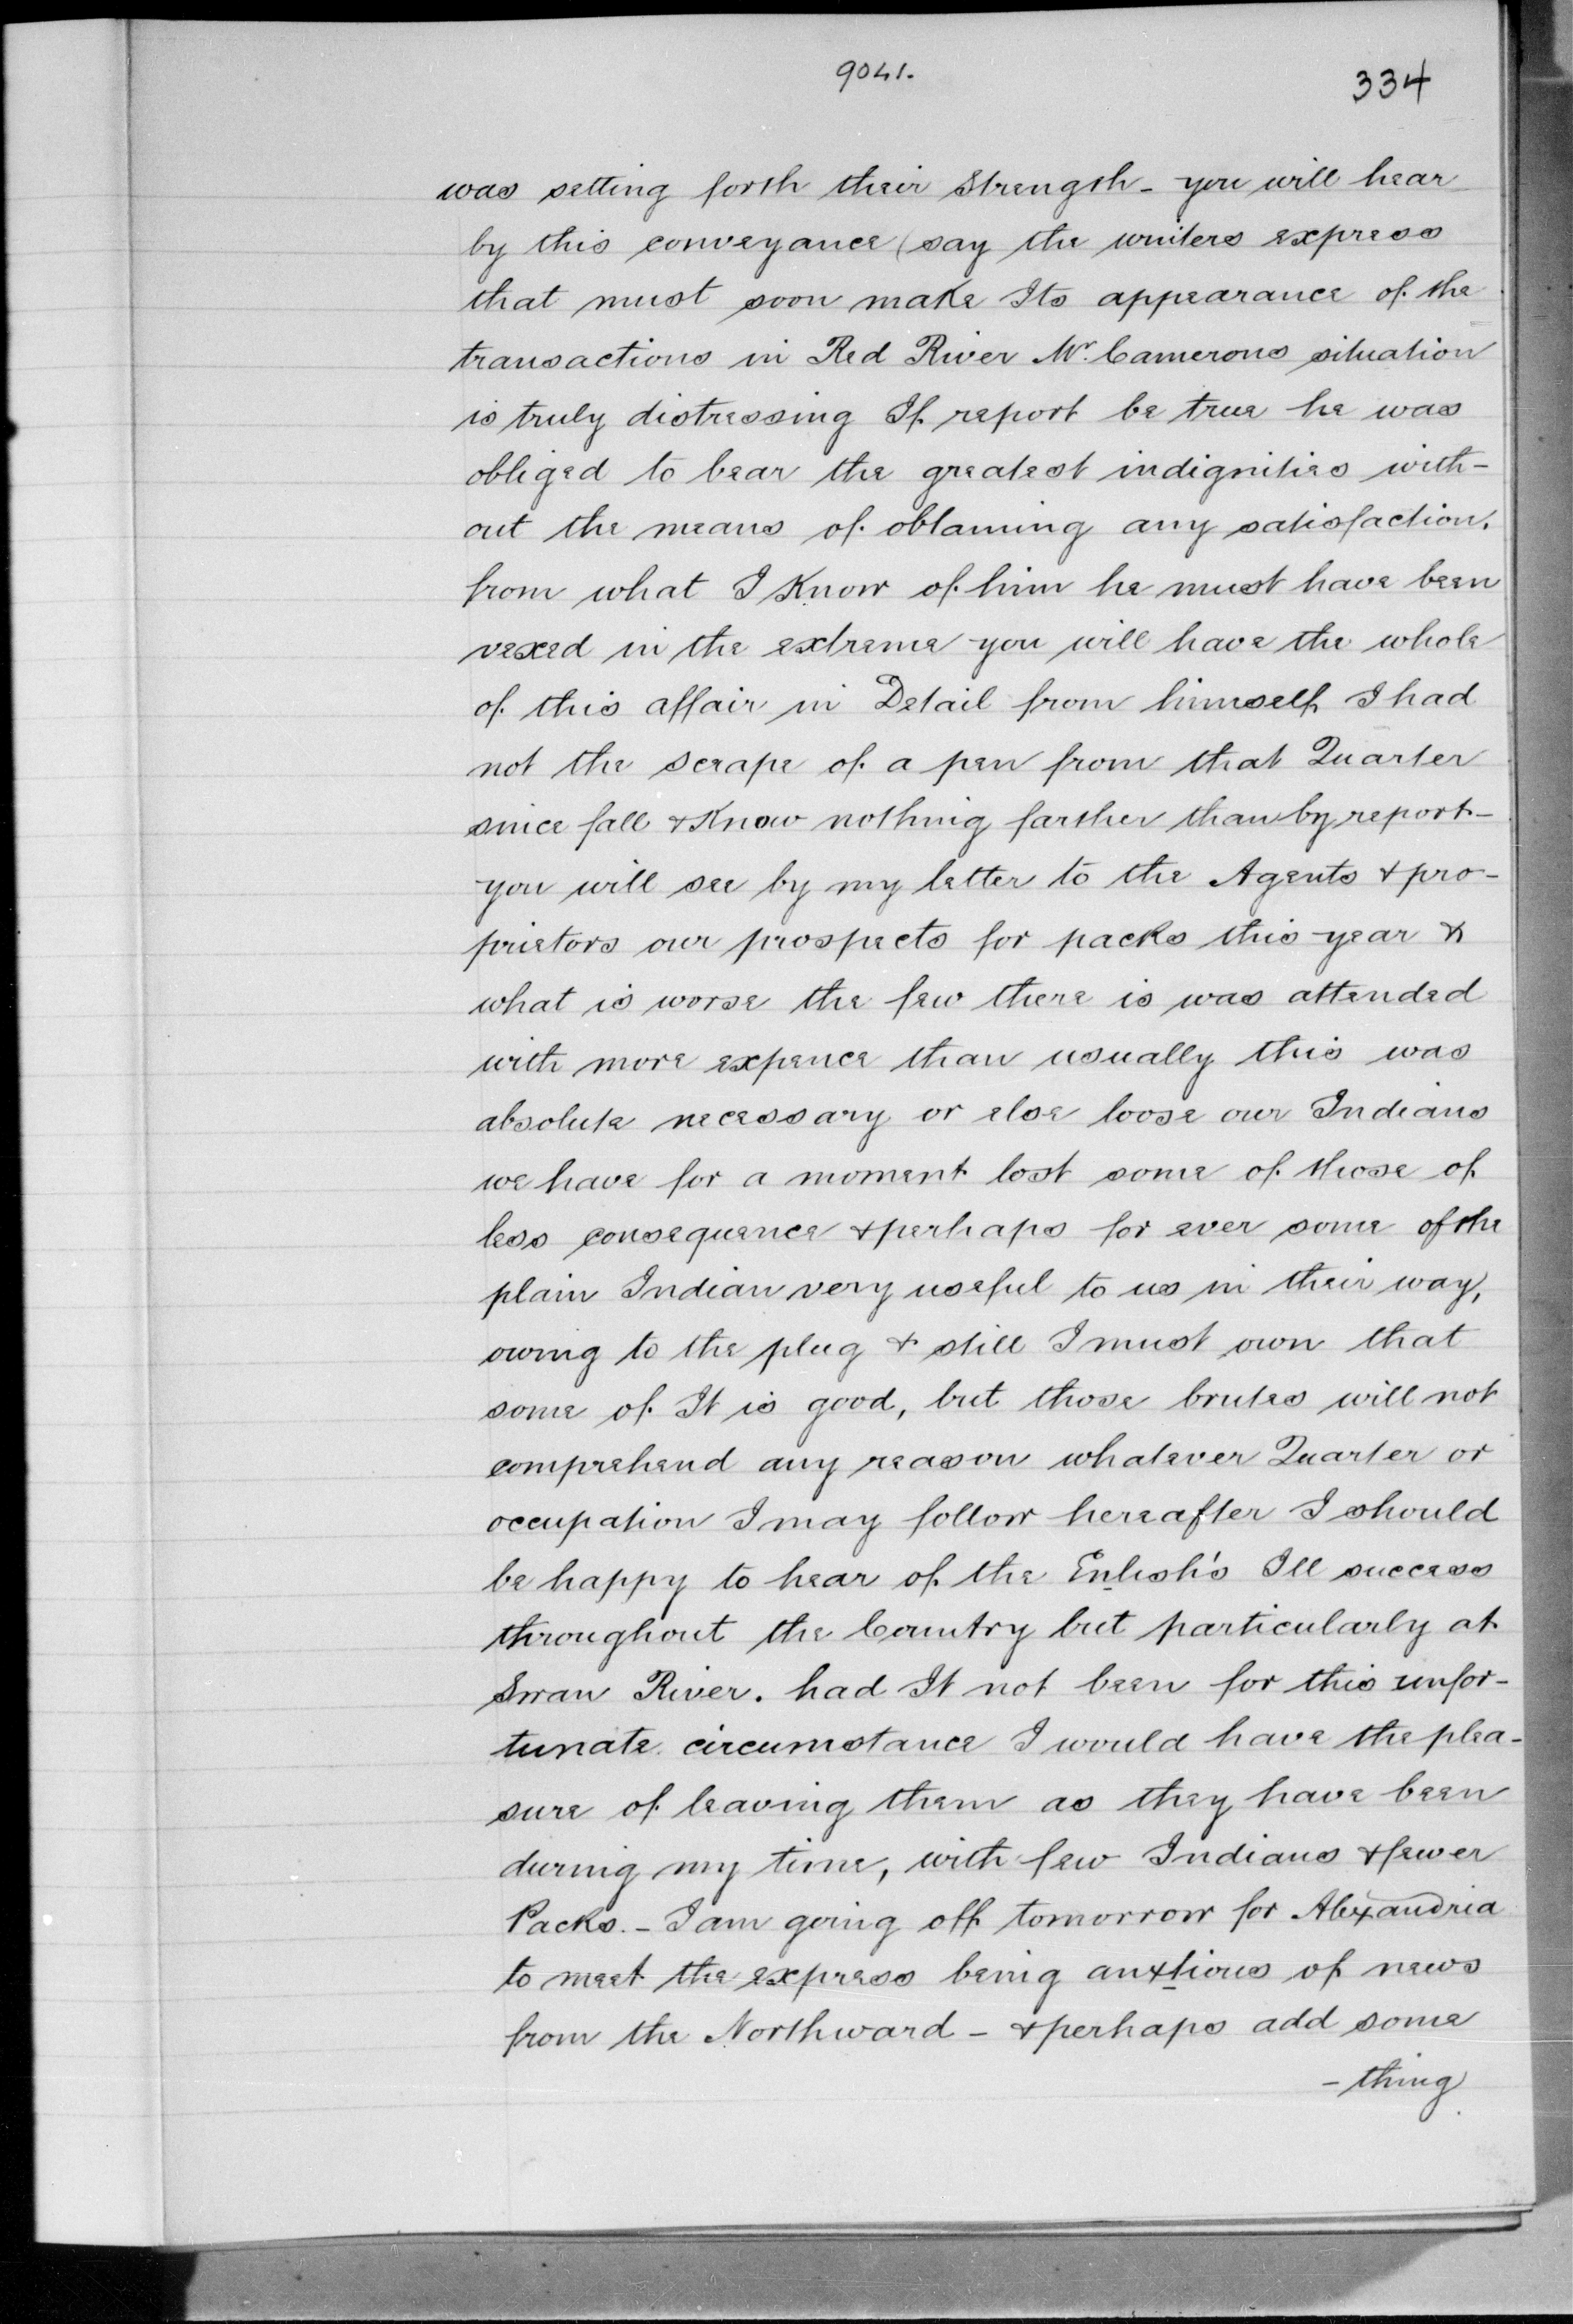 9041.
334
was setting forth their Strength - you will hear
by this conveyance (say the winters express
that must soon make Its appearance of the
transactions in Red River Mr. Camerons situation
is truly distressing If report be true he was
obliged to bear the greatest indignities with-
out the means of obtaining any satisfaction.
from what I Know of him he must have been
vexed in the extreme you will have the whole
of this affair in Detail from himself I had
not the scrape of a pen from that Quarter
since fall & Know nothing farther than by report -
you will see by my letter to the Agents & pro-
prietors our prospects for packs this year &
what is worse the few there is was attended
with more expence than usually this was
absolute necessary or else loose our Indians
we have for a moment lost some of those of
less consequence & perhaps for ever some of the
plain Indian very useful to us in their way,
owing to the plug & still I must own that
some of It is good, but those brutes will not
comprehend any reason whatever Quarter or
occupation I may follow hereafter I should
be happy to hear of the Enlish's Ill success
throughout the Country but particularly at
Swan River. had It not been for this unfor-
tunate circumstance I would have the plea-
sure of leaving them as they have been
during my time, with few Indians & fewer
Packs. - I am going off tomorrow for Alexandria
to meet the express being anxtious of news
from the Northward - & perhaps add some
- thing